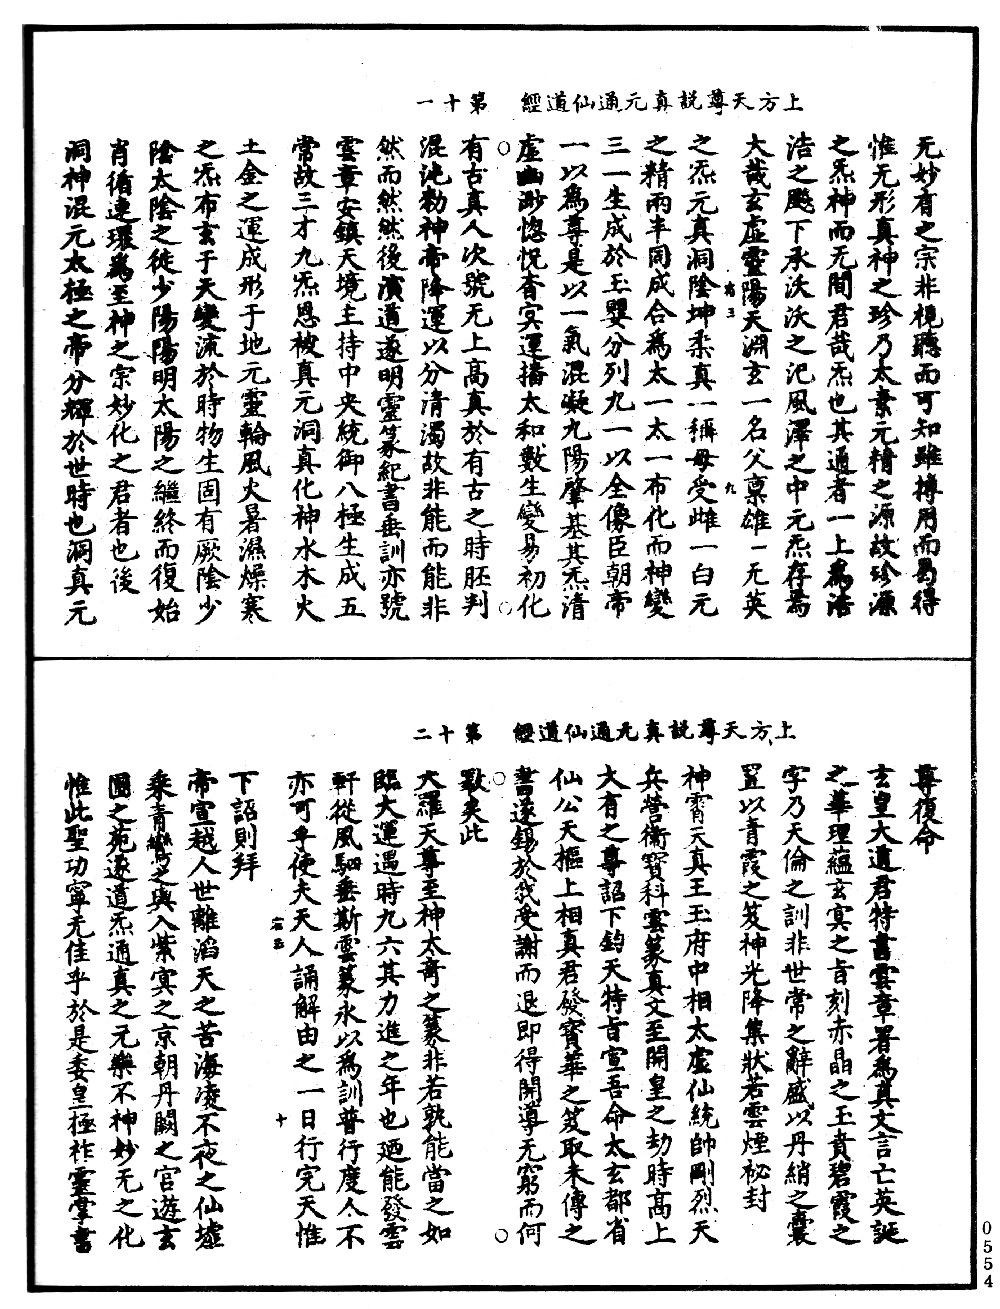 上方天尊說真元通仙道經　第十一
无妙有之宗非視聽而可知雖摶用而曷得
惟无形真神之珍乃太素元精之源故珍源
之炁神而无間君哉炁也其通者一上為浩
浩之颷下承沃沃之汜風澤之中元炁存焉
大哉玄虛靈陽天淵玄一名父稟雄一无英
之炁元真洞陰坤柔真一稱母受雌一白元
之精兩半同成合為太一太一布化而神變
三一生成於玉嬰分列九一以全像臣朝帝
一以為尊是以一氣混凝九陽肇基其炁清
虛幽渺惚怳杳冥運播太和數生變易初化
有古真人次號无上高真於有古之時胚判
混沌勑神帝降運以分清濁故非能而能非
然而然然後演道遂明靈篆紀書垂訓亦號
雲章安鎮天境主持中央統御八極生成五
常故三才九炁恩被真元洞真化神水木火
土金之運成形于地元靈輪風火暑濕燥寒
之炁布玄于天變流於時物生固有厥陰少
陰太陰之徒少陽陽明太陽之繼終而復始
肖循連環為至神之宗妙化之君者也後
洞神混元太極之帝分輝於世時也洞真元
九
上方天尊說真元通仙道經　第十二
尊復命
玄皇大道君特書雲章署為真文言亡英誕
之華理蘊玄冥之旨刻赤晶之玉賁碧霞之
字乃天倫之訓非世常之辭盛以丹綃之囊
罝以青霞之笈神光降集狀若雲煙祕封
神霄天真王玉府中相太虛仙統帥剛烈天
兵營衛寶科雲篆真文至開皇之劫時高上
大有之尊詔下鈞天特旨宣吾命太玄都省
仙公天樞上相真君發寶華之笈取未傳之
書遂錫於我受謝而退即得開導无窮而何
歎矣此
大羅天尊至神太奇之篆非若孰能當之如
臨大運遇時九六其力進之年也廼能發雲
軒從風駟垂斯雲篆永以為訓普行度人不
亦可乎使夫天人誦解由之一日行完天惟
下詔則拜
帝宣越人世離滔天之苦海凌不夜之仙墟
乘青鸞之輿入紫冥之京朝丹闕之官遊玄
圃之苑遂道炁通真之元樂不神妙无之化
惟此聖功寧无佳乎於是委皇極祚靈掌書
十
0554